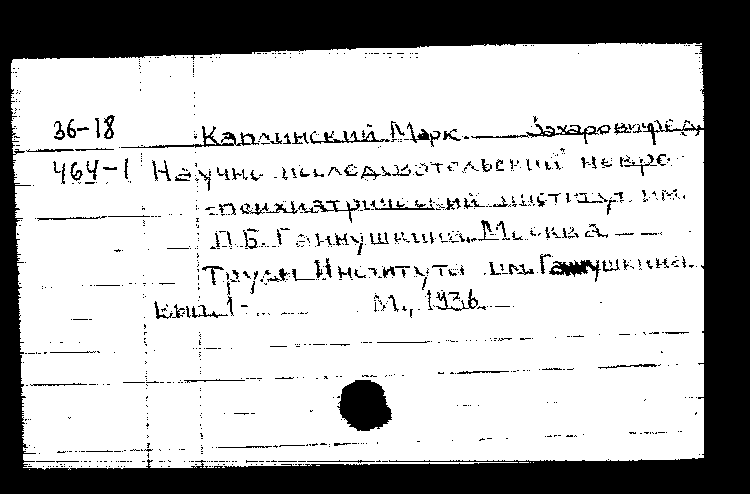 36-18 Каплинский Марк Захарович, ред.
464-1 Научно исследовательский невро
-психиатрический институт им.
П.Б. Ганнушкина. Москва
Труды Института им. Ганнушкина.
Вып. 1- М., 1936.